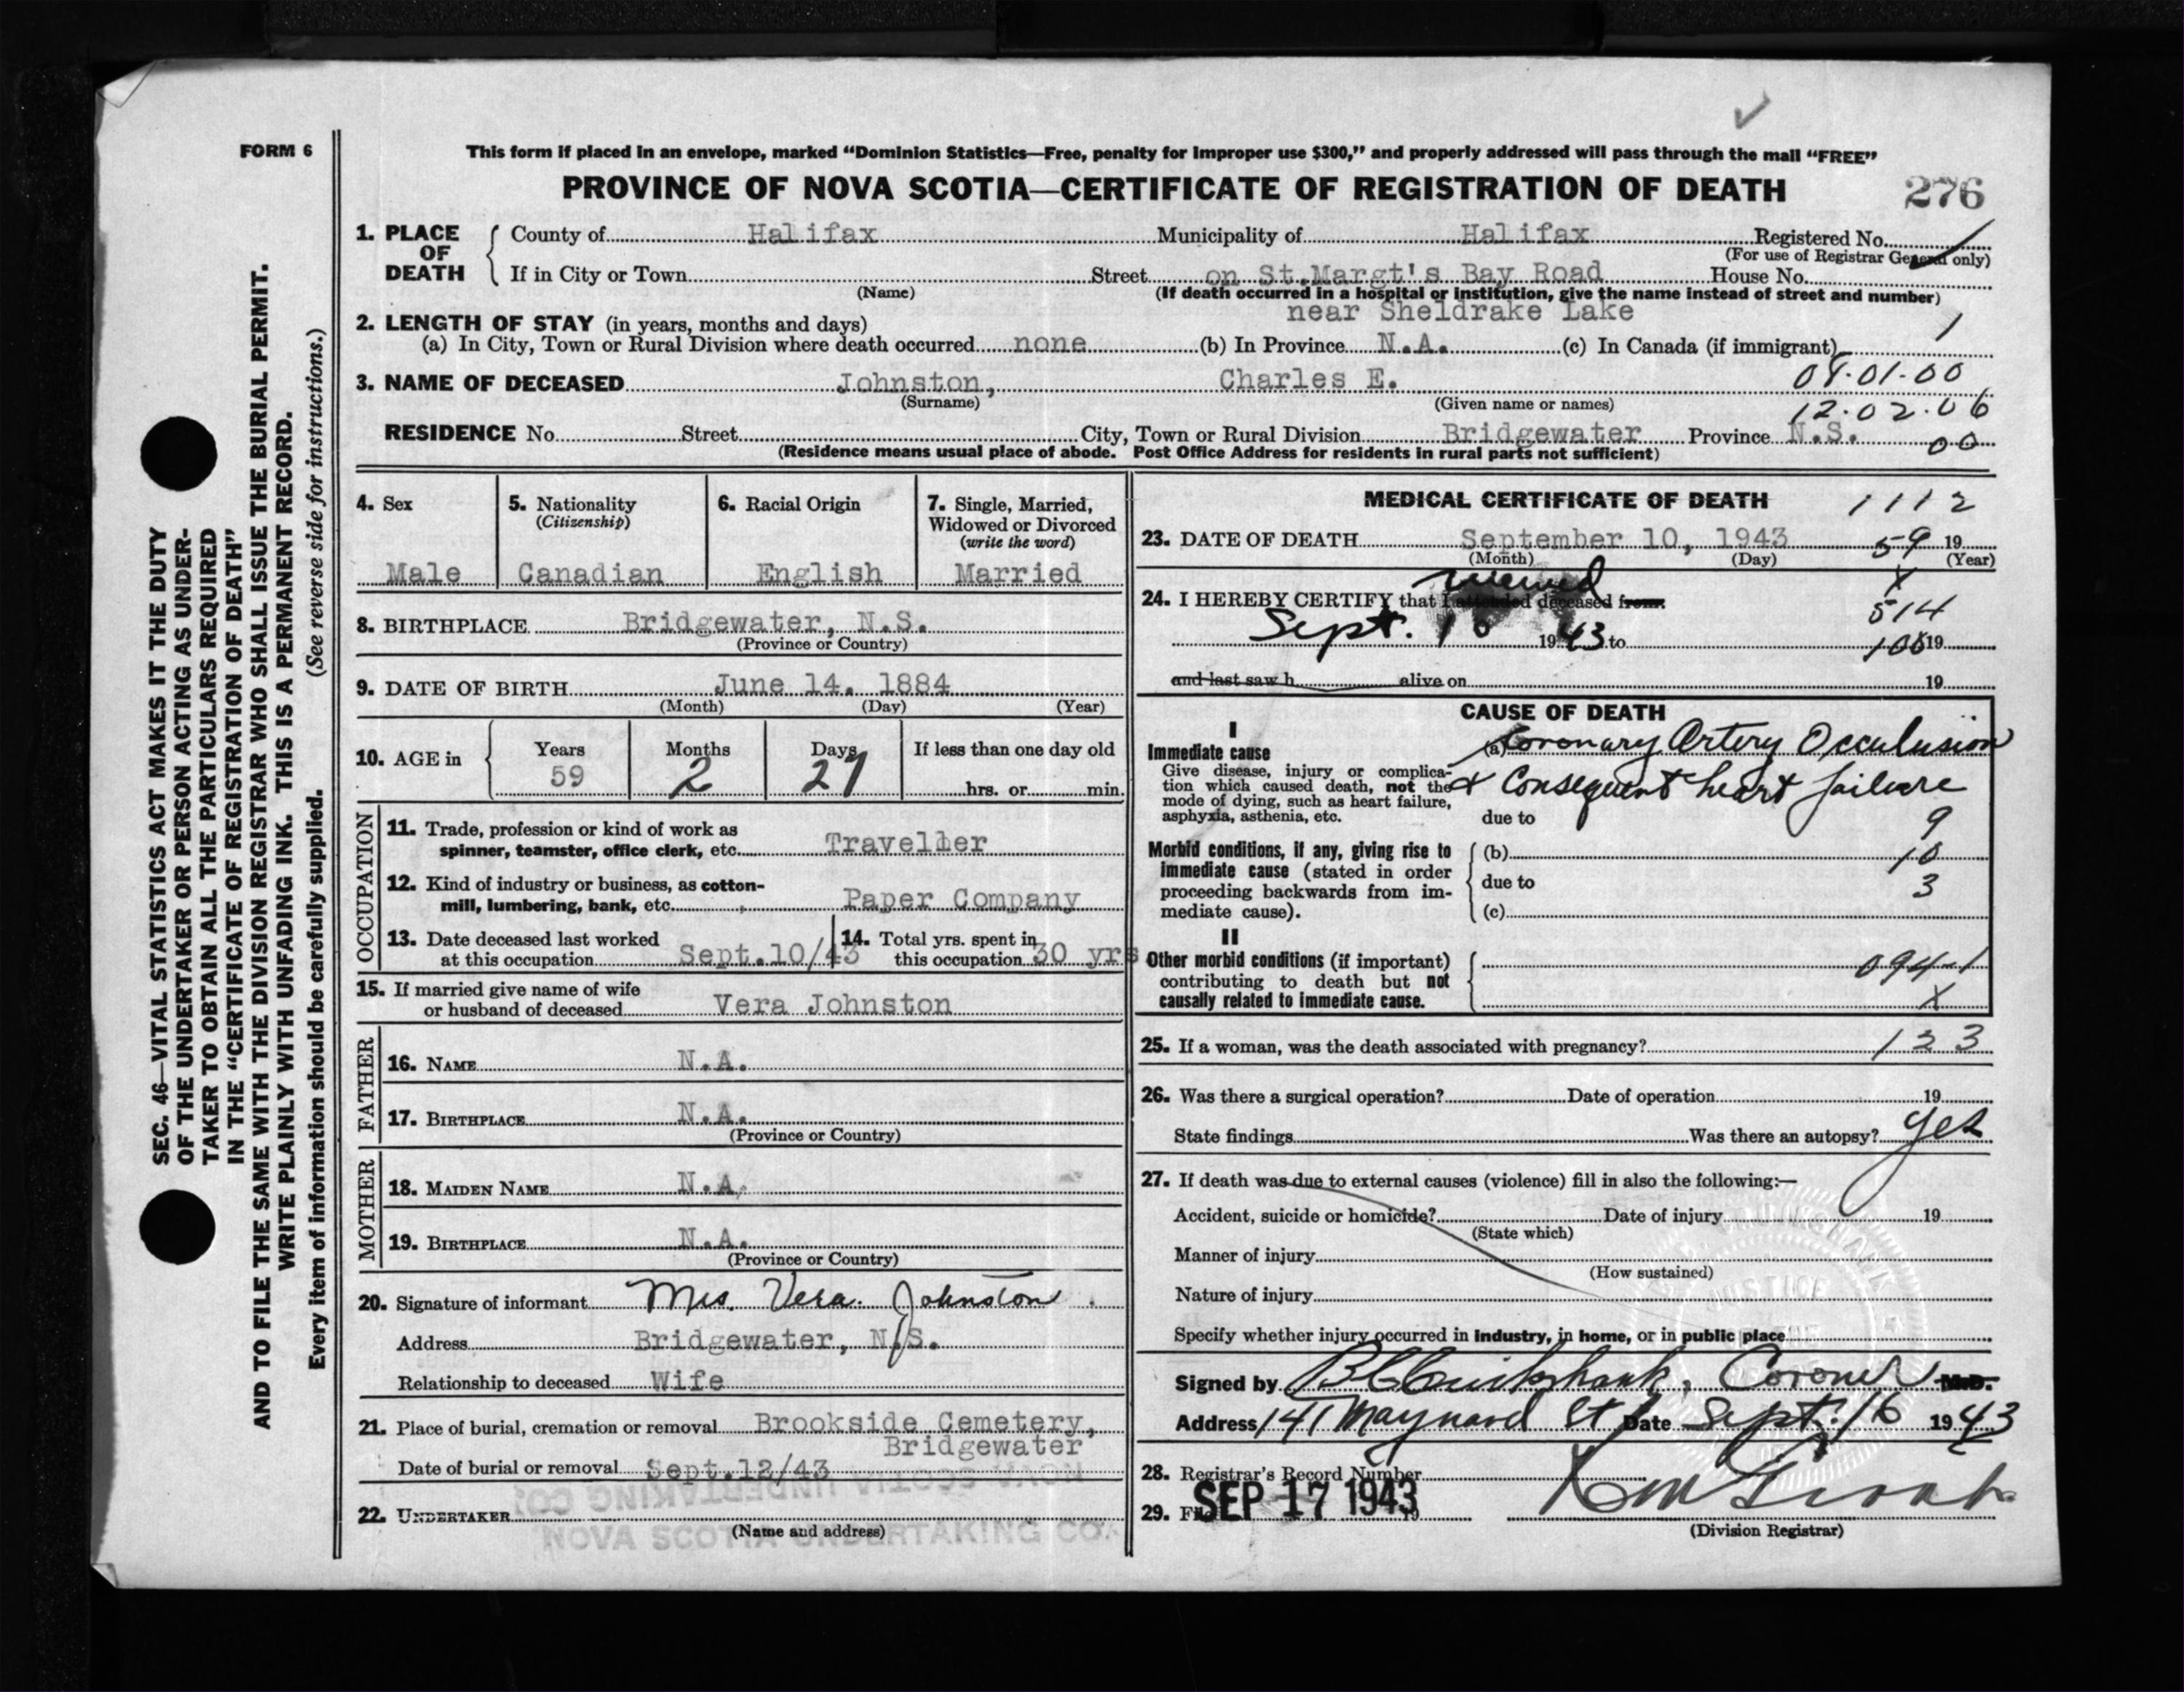 FORM 6
This form if placed in an envelope, marked “Dominion Statistics—Free, penalty for improper use $300,” and properly addressed will pass through the mail “FREE”
PROVINCE OF NOVA SCOTIA—CERTIFICATE OF REGISTRATION OF DEATH
276
1. PLACE OF DEATH
County of Halifax Municipality of Halifax Registered No.
(For use of Registrar General only)
If in City or Town Street on St.Margt's Bay Road House No.
(Name) (If death occurred in a hospital or institution, give the name instead of street and number)
near Sheldrake Lake
2. LENGTH OF STAY (in years, months and days) 1
(a) In City, Town or Rural Division where death occurred none (b) In Province N.A. (c) In Canada (if immigrant)
3. NAME OF DECEASED Johnston, Charles E. 08.01.00
(Surname) (Given name or names) 12.02.06
RESIDENCE No. Street City, Town or Rural Division Bridgewater Province N.S. 00
(Residence means usual place of abode. Post Office Address for residents in rural parts not sufficient)
4. Sex
Male
5. Nationality
(Citizenship)
Canadian
6. Racial Origin
English
7. Single, Married,
Widowed or Divorced
(write the word)
Married
8. BIRTHPLACE Bridgewater, N.S.
(Province or Country)
9. DATE OF BIRTH June 14, 1884
(Month) (Day) (Year)
10. AGE in
Years Months Days If less than one day old
59 2 27
hrs. or min.
OCCUPATION
11. Trade, profession or kind of work as
spinner, teamster, office clerk, etc. Traveller
12. Kind of industry or business, as cotton-
mill, lumbering, bank, etc. Paper Company
13. Date deceased last worked
at this occupation Sept.10/43
14. Total yrs. spent in
this occupation 30 yrs
15. If married give name of wife
or husband of deceased Vera Johnston
FATHER
16. NAME N.A.
17. BIRTHPLACE N.A.
(Province or Country)
MOTHER
18. MAIDEN NAME N.A.
19. BIRTHPLACE N.A.
(Province or Country)
20. Signature of informant Mrs. Vera Johnston
Address Bridgewater, N.S.
Relationship to deceased Wife
21. Place of burial, cremation or removal Brookside Cemetery,
Bridgewater
Date of burial or removal Sept.12/43
22. UNDERTAKER
(Name and address)
NOVA SCOTIA UNDERTAKING CO.
MEDICAL CERTIFICATE OF DEATH 1112
23. DATE OF DEATH September 10, 1943 59 19
(Month) (Day) (Year)
X
24. I HEREBY CERTIFY that I attended viewed deceased from 514
Sept. 10 1943 to 19
and last saw h alive on 19
CAUSE OF DEATH
I
Immediate cause
Give disease, injury or complica-
tion which caused death, not the
mode of dying, such as heart failure,
asphyxia, asthenia, etc.
(a) Coronary Artery Occulusion
& Consequent heart failure
due to 9
Morbid conditions, if any, giving rise to
immediate cause (stated in order
proceeding backwards from im-
mediate cause).
(b) 10
due to 3
(c)
II
Other morbid conditions (if important)
contributing to death but not
causally related to immediate cause.
094-1
X
25. If a woman, was the death associated with pregnancy? 123
26. Was there a surgical operation? Date of operation 19
State findings Was there an autopsy? yes
27. If death was due to external causes (violence) fill in also the following:—
Accident, suicide or homicide? Date of injury 19
(State which)
Manner of injury
(How sustained)
Nature of injury
Specify whether injury occurred in industry, in home, or in public place
Signed by Cruikshank, Coroner M.D.
Address 141 Maynard St Date Sept. 16 1943
28. Registrar's Record Number
29. Filed SEP 17 1943 19
(Division Registrar)
SEC. 46—VITAL STATISTICS ACT MAKES IT THE DUTY
OF THE UNDERTAKER OR PERSON ACTING AS UNDER-
TAKER TO OBTAIN ALL THE PARTICULARS REQUIRED
IN THE “CERTIFICATE OF REGISTRATION OF DEATH”
AND TO FILE THE SAME WITH THE DIVISION REGISTRAR WHO SHALL ISSUE THE BURIAL PERMIT.
WRITE PLAINLY WITH UNFADING INK. THIS IS A PERMANENT RECORD.
Every item of information should be carefully supplied. (See reverse side for instructions.)